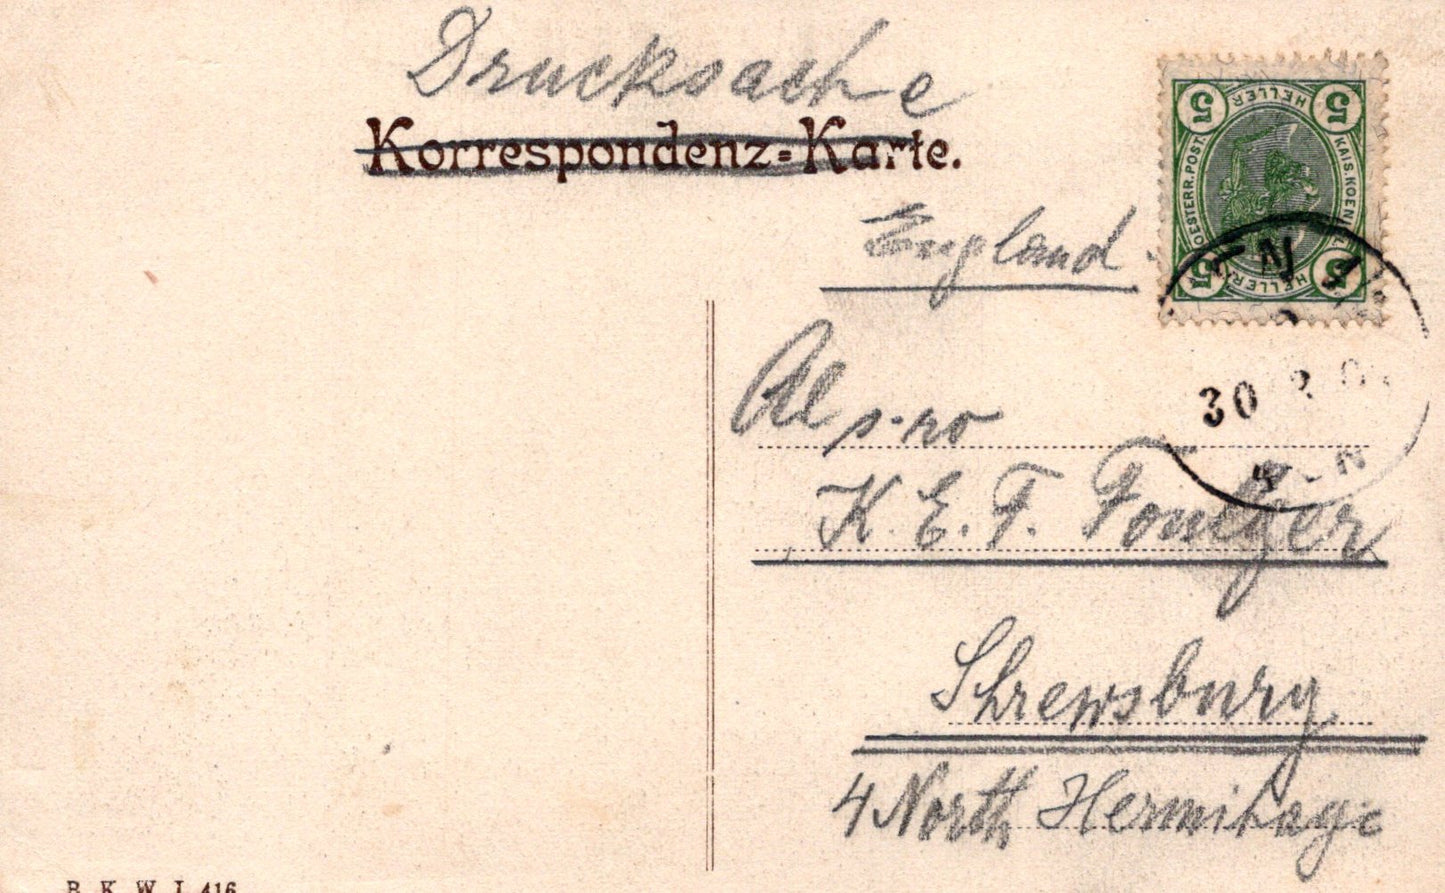 Drucksache
Korrespondenz-Karte.
5 HELLER 5
OESTERR. POST.
5 HELLER 5
England
30
K. E. F. Foulger
Shrewsbury
4 North Hermitage
B. K. W. I. 416